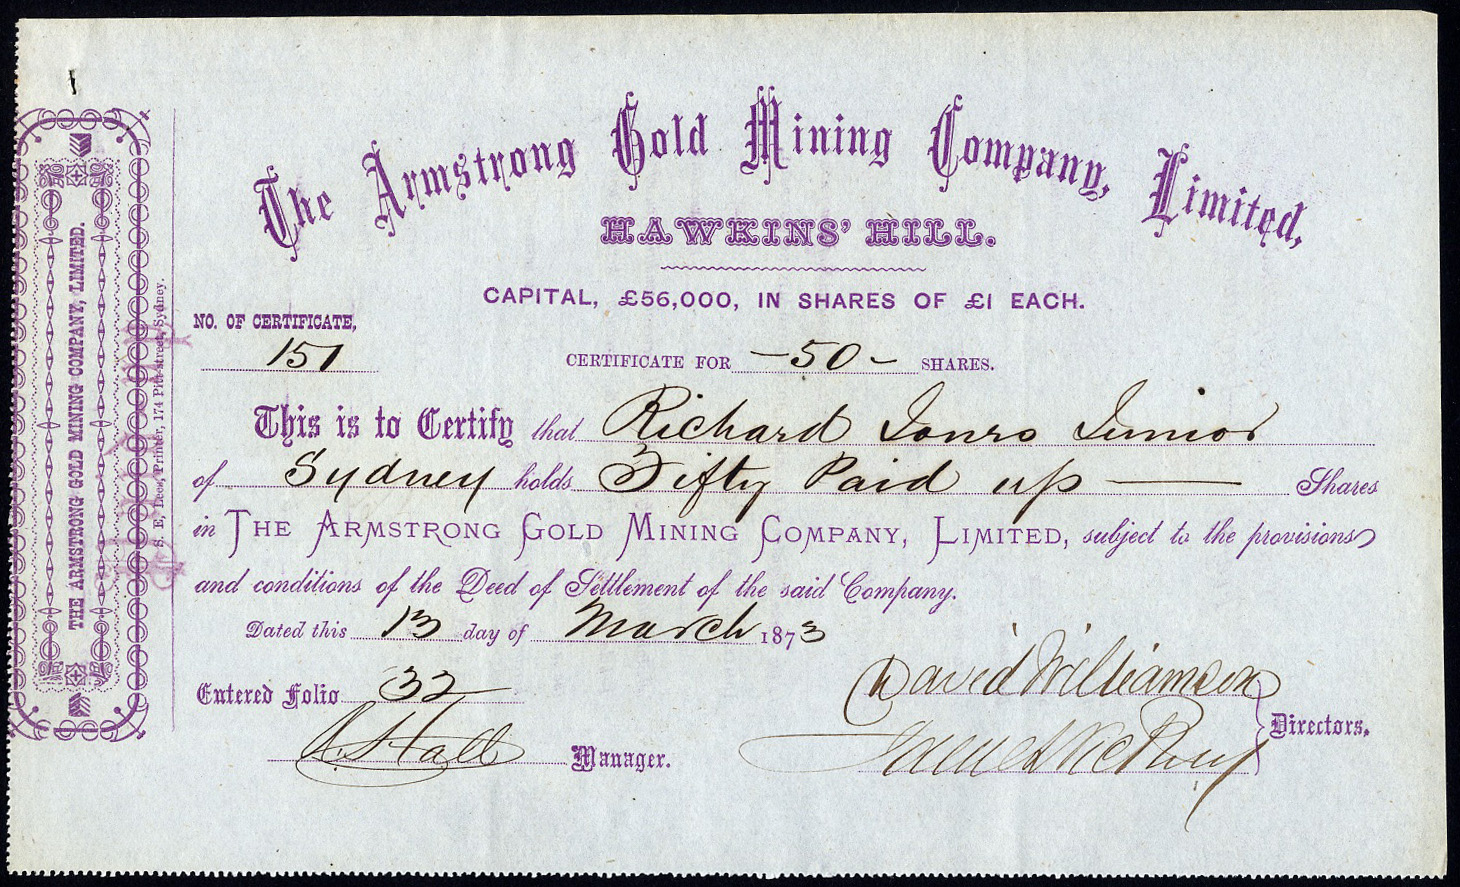 The Armstrong Gold Mining Company, Limited,
HAWKINS' HILL.
CAPITAL, £56,000, IN SHARES OF £1 EACH.
NO. OF CERTIFICATE,
151
CERTIFICATE FOR -50- SHARES.
This is to Certify that Richard Jones Junior
of Sydney holds Fifty Paid up — Shares
in THE ARMSTRONG GOLD MINING COMPANY, LIMITED, subject to the provisions
and conditions of the Deed of Settlement of the said Company.
Dated this 13 day of March 1873
Entered Folio 32
David Williamson
Hall Manager.
Directors.
THE ARMSTRONG GOLD MINING COMPANY, LIMITED.
S. E. Lees, Printer, 174 Pitt-street, Sydney.